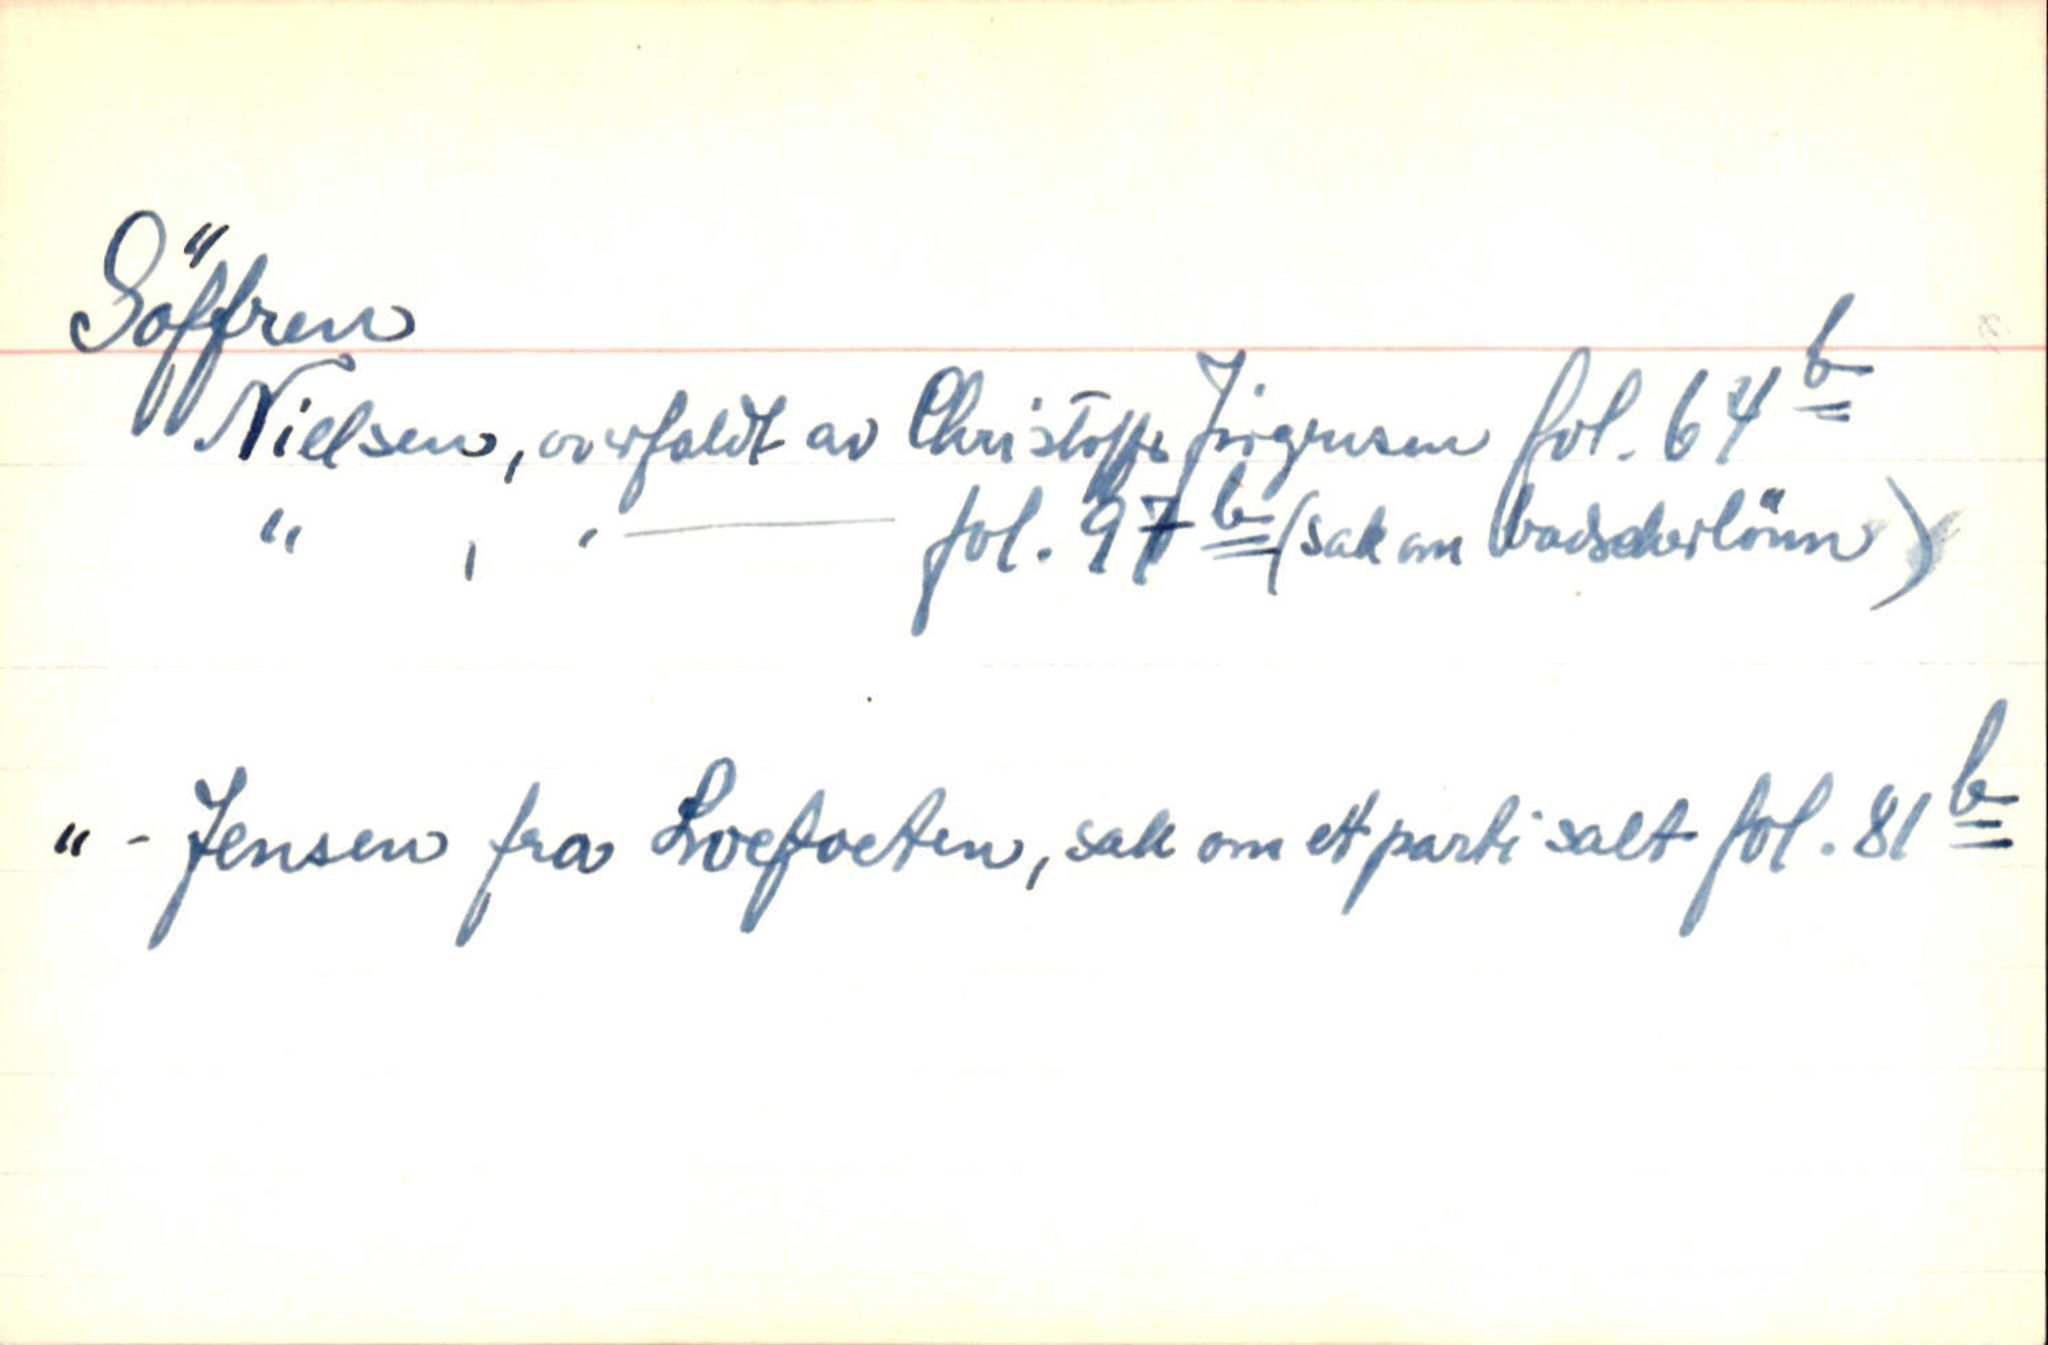 Söffren
Nielsen, overfaldt av Christoffer Jörgensen fol. 64 b
" , " — fol. 97 b (sak om badscherlönn)
" - Jensen fra Loefoeten, sak om et parti salt fol. 81 b